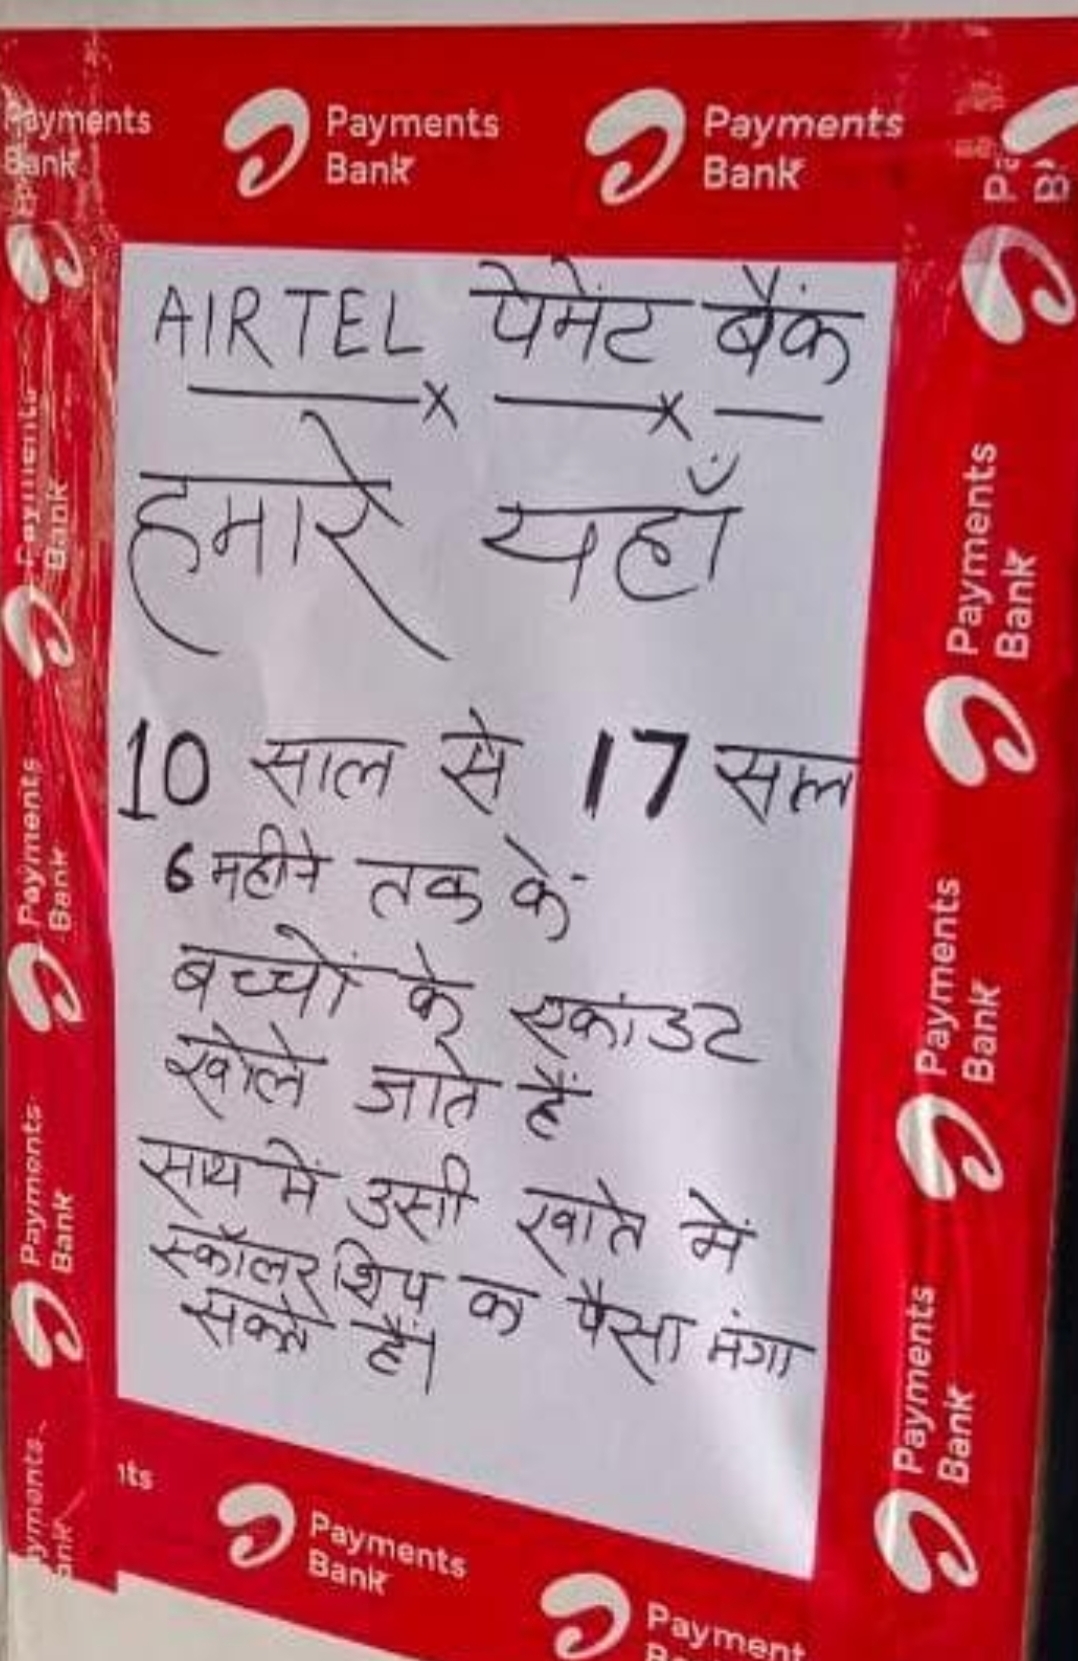 Payments Bank
Payments Bank
Payments Bank
AIRTEL पेमेंट बैंक
हमारे यहाँ
10 साल से 17 साल
6 महीने तक कें
बच्चों के एकांउट
खोले जाते हैं
साथ में उसी खाते में
स्कॉलरशिप का पैसा मंगा
सकते हैं।
Payments Bank
Payments Bank
Payments Bank
Payments Bank
Payments Bank
Payments Bank
Payments Bank
Payments Bank
Payment